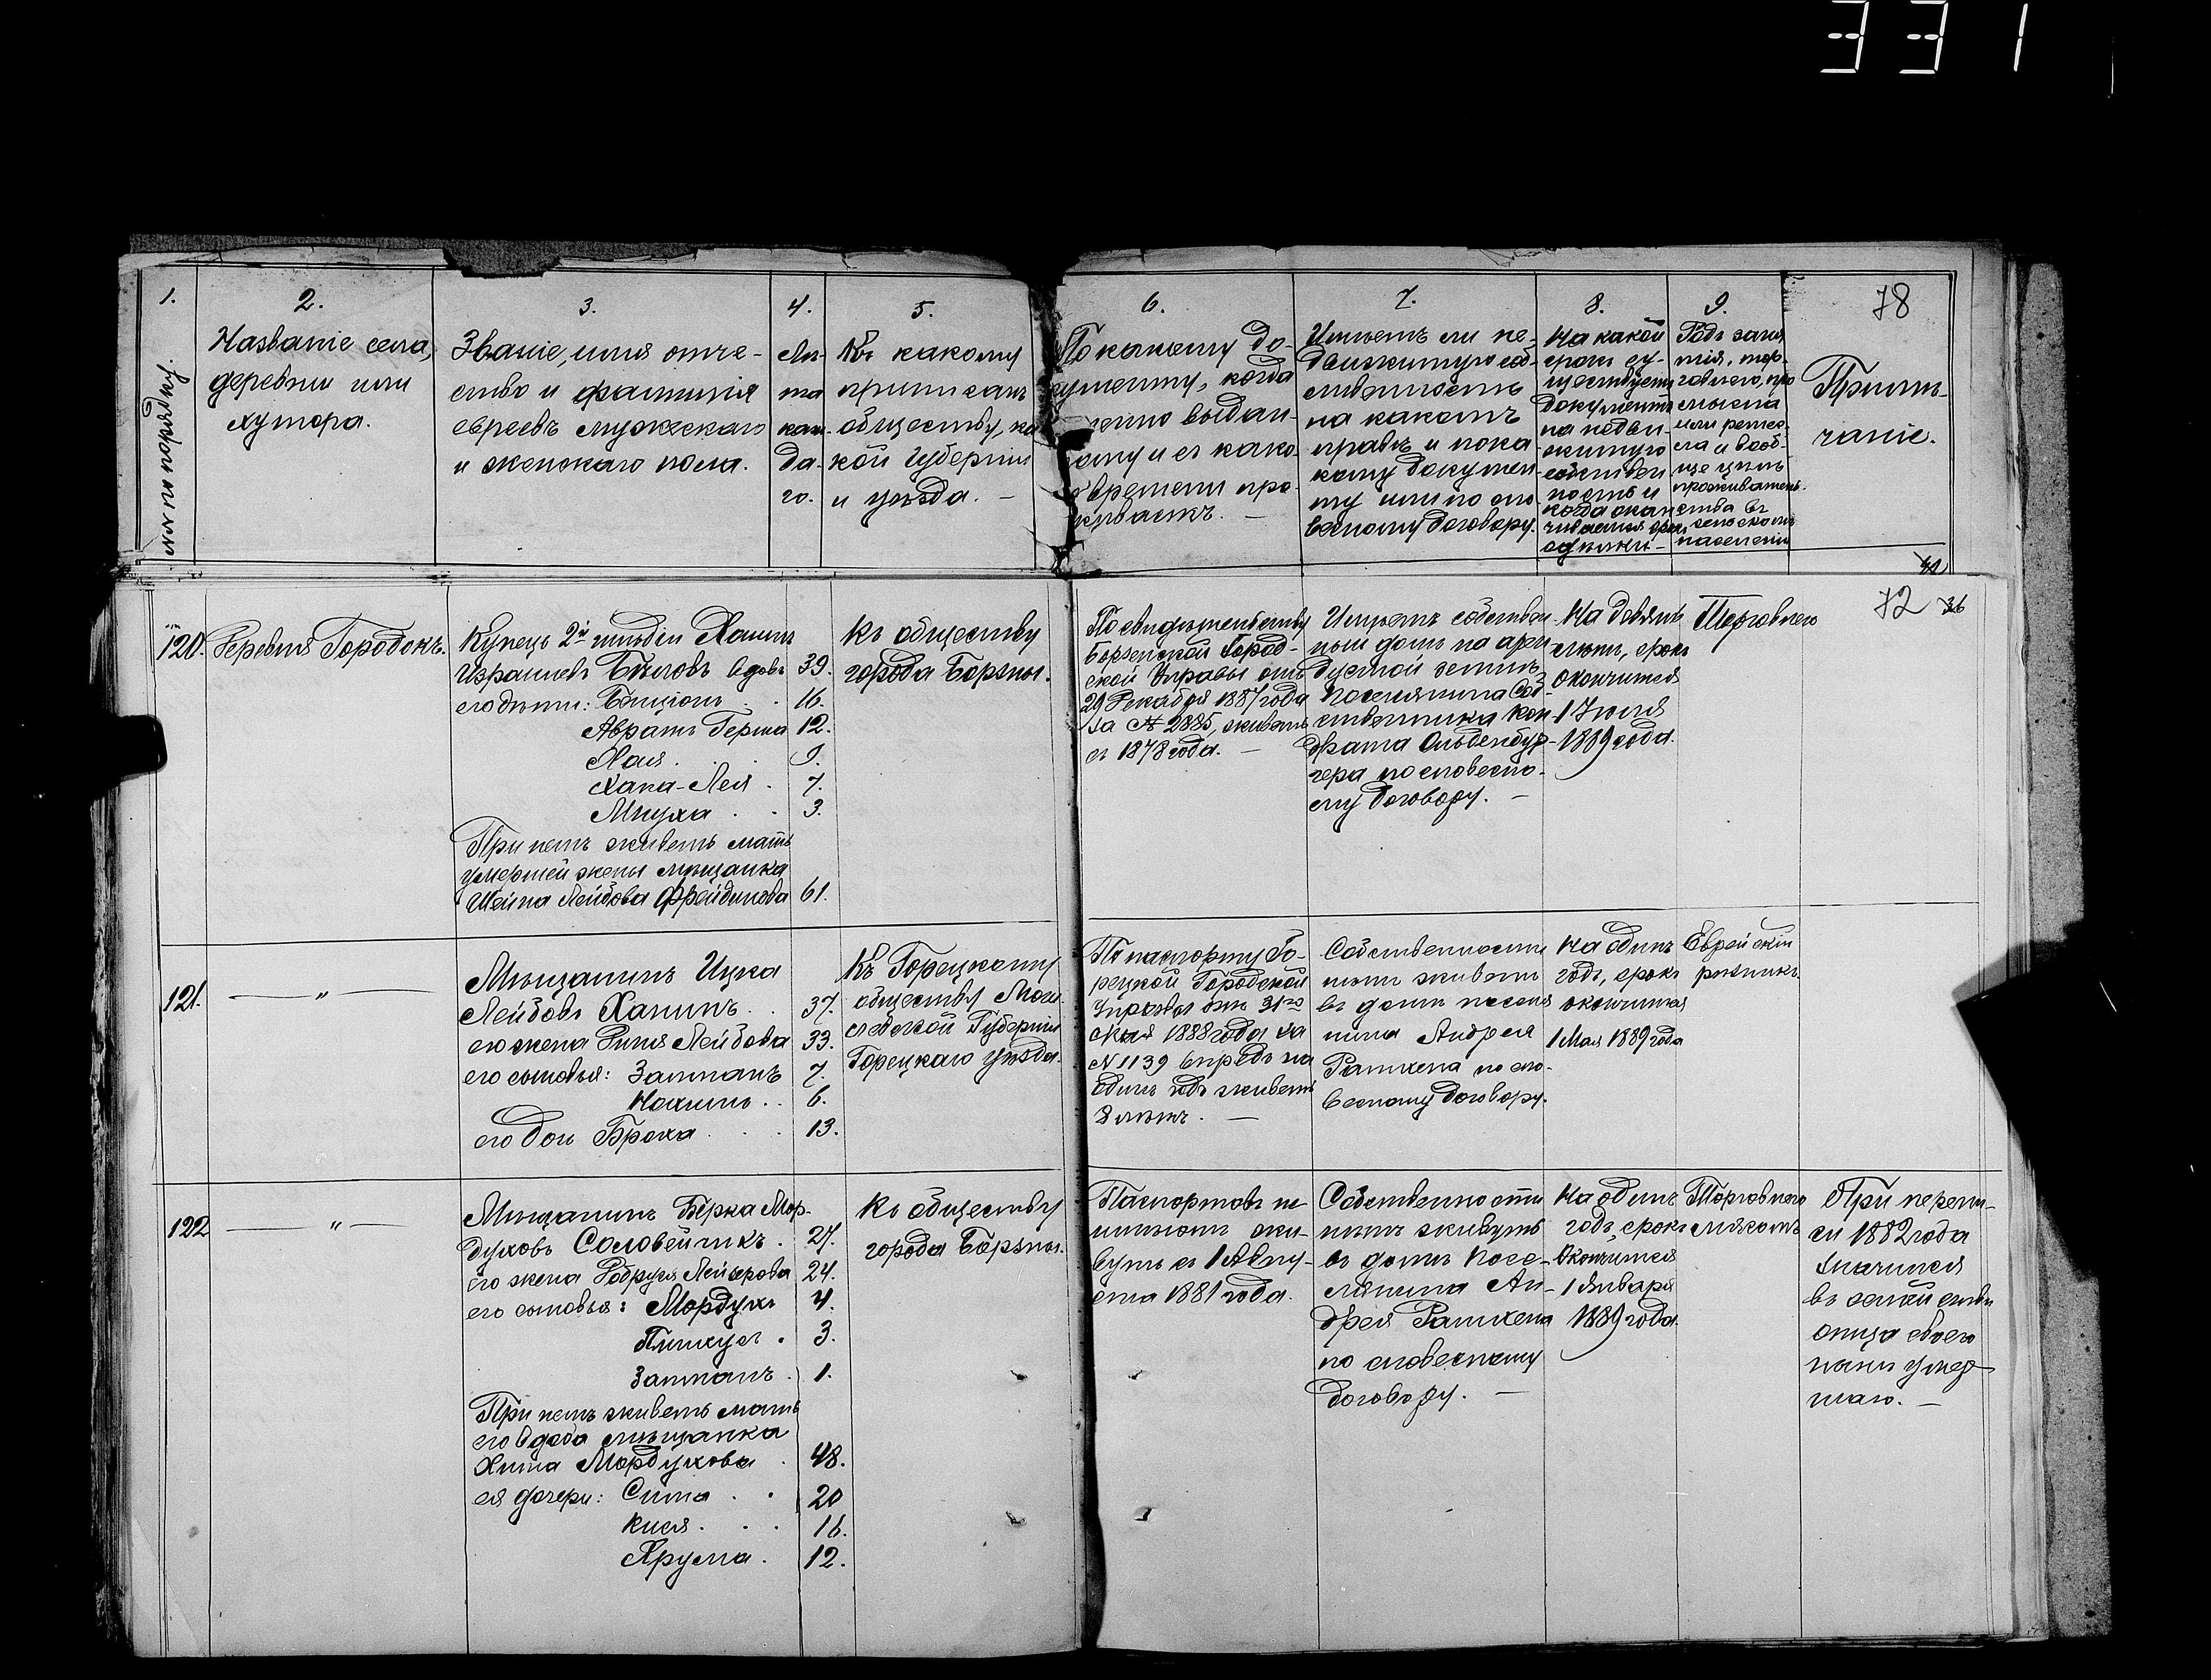 331
1.
№№ по порядку.
2.
Названіе села,
деревни или
хутора.
3.
Званіе, имя отче-
ство и фамилія
евреевъ мужскаго
и женскаго пола.
4.
Лѣ-
та
каж-
да-
го.
5.
Къ какому
приписанъ
обществу, ка
кой Губерніи
и уѣзда. —
6.
По какому до-
кументу, когда
времени про-
живаетъ. —
7.
Имѣетъ ли не-
движимую соб-
ственность
на какомъ
правѣ и по ка
кому докумен
ту или по сло
весному договору.
8.
На какой
срокъ су-
ществуетъ
документъ
на недви-
жимую
собствен
ность и
когда окан
9.
Родъ заня
тія, тор-
говлею, про
мысла
или ремес-
ла и вооб-
ще чѣмъ
ства въ
сельскомъ
населеніи
78
Примѣ-
чаніе.
72 36
120.
Деревня Городокъ.
Купецъ 2й гильдіи Хаимъ
Израилевъ Бѣловъ вдовъ 39.
его дѣти: Бенціонъ . . 16.
Аврамъ Герша 12.
Хая . . . 9.
Хана-Лея . 7.
Мнуха . . 3.
При немъ живетъ мать
умершей жены мѣщанка
Шейна Лейбова Фрейдинова 61.
Къ обществу
города Борзны.
По свидѣтельству
Борзенской Город-
ской Управы отъ
29 Декабря 1887 года
за № 2885, живетъ
съ 1878 года. —
Имѣетъ собствен
ный домъ на арен
дуемой землѣ
поселянина Соб-
ственника Кон-
драта Ольденбур-
гера по словесно-
му договору. —
На девять
лѣтъ, срокъ
окончится
1 Іюля
1889 года.
Торговлею
121.
— „ —
Мѣщанинъ Ицка
Лейбовъ Ханинъ . . 37.
его жена Риня Лейбова 33.
его сыновья: Залманъ 7.
Нохимъ . . 6.
его дочь Броха . . . 13.
Къ Горецкому
обществу Моги
левской Губерніи
Горецкаго уѣзда.
По паспорту Го-
рецкой Городской
Управы отъ 31го
Мая 1888 года за
№ 1139 впредь на
одинъ годъ живетъ
8 лѣтъ. —
Собственности
нѣтъ живетъ
въ домѣ поселя
нина Андрея
Ратхена по сло-
весному договору.
На одинъ
годъ, срокъ
окончится
1 Мая 1889 года
Еврейскій
рѣзникъ.
122
— „ —
Мѣщанинъ Берка Мор-
духовъ Соловейчикъ . 27.
его жена Добруся Лейзерова 24.
его сыновья: Мордухъ 4.
Пинхусъ . 3.
Залманъ . 1.
При немъ живетъ мать
его вдова мѣщанка
Хима Мордухова . 48.
ея дочери: Сима . . 20
Кися . . . 16.
Фрума . 12.
Къ обществу
города Борзны.
Паспортовъ не
имѣютъ жи-
вутъ съ 1 Авгу-
ста 1881 года.
Собственности
нѣтъ живутъ
въ домѣ посе-
лянина Ан-
дрея Ратхена
по словесному
договору. —
На одинъ
годъ, срокъ
окончится
1 Января
1889 года.
Торговлею
мясомъ
При перепи-
си 1882 года
значился
въ семействѣ
отца своего
нынѣ умер-
шаго. —